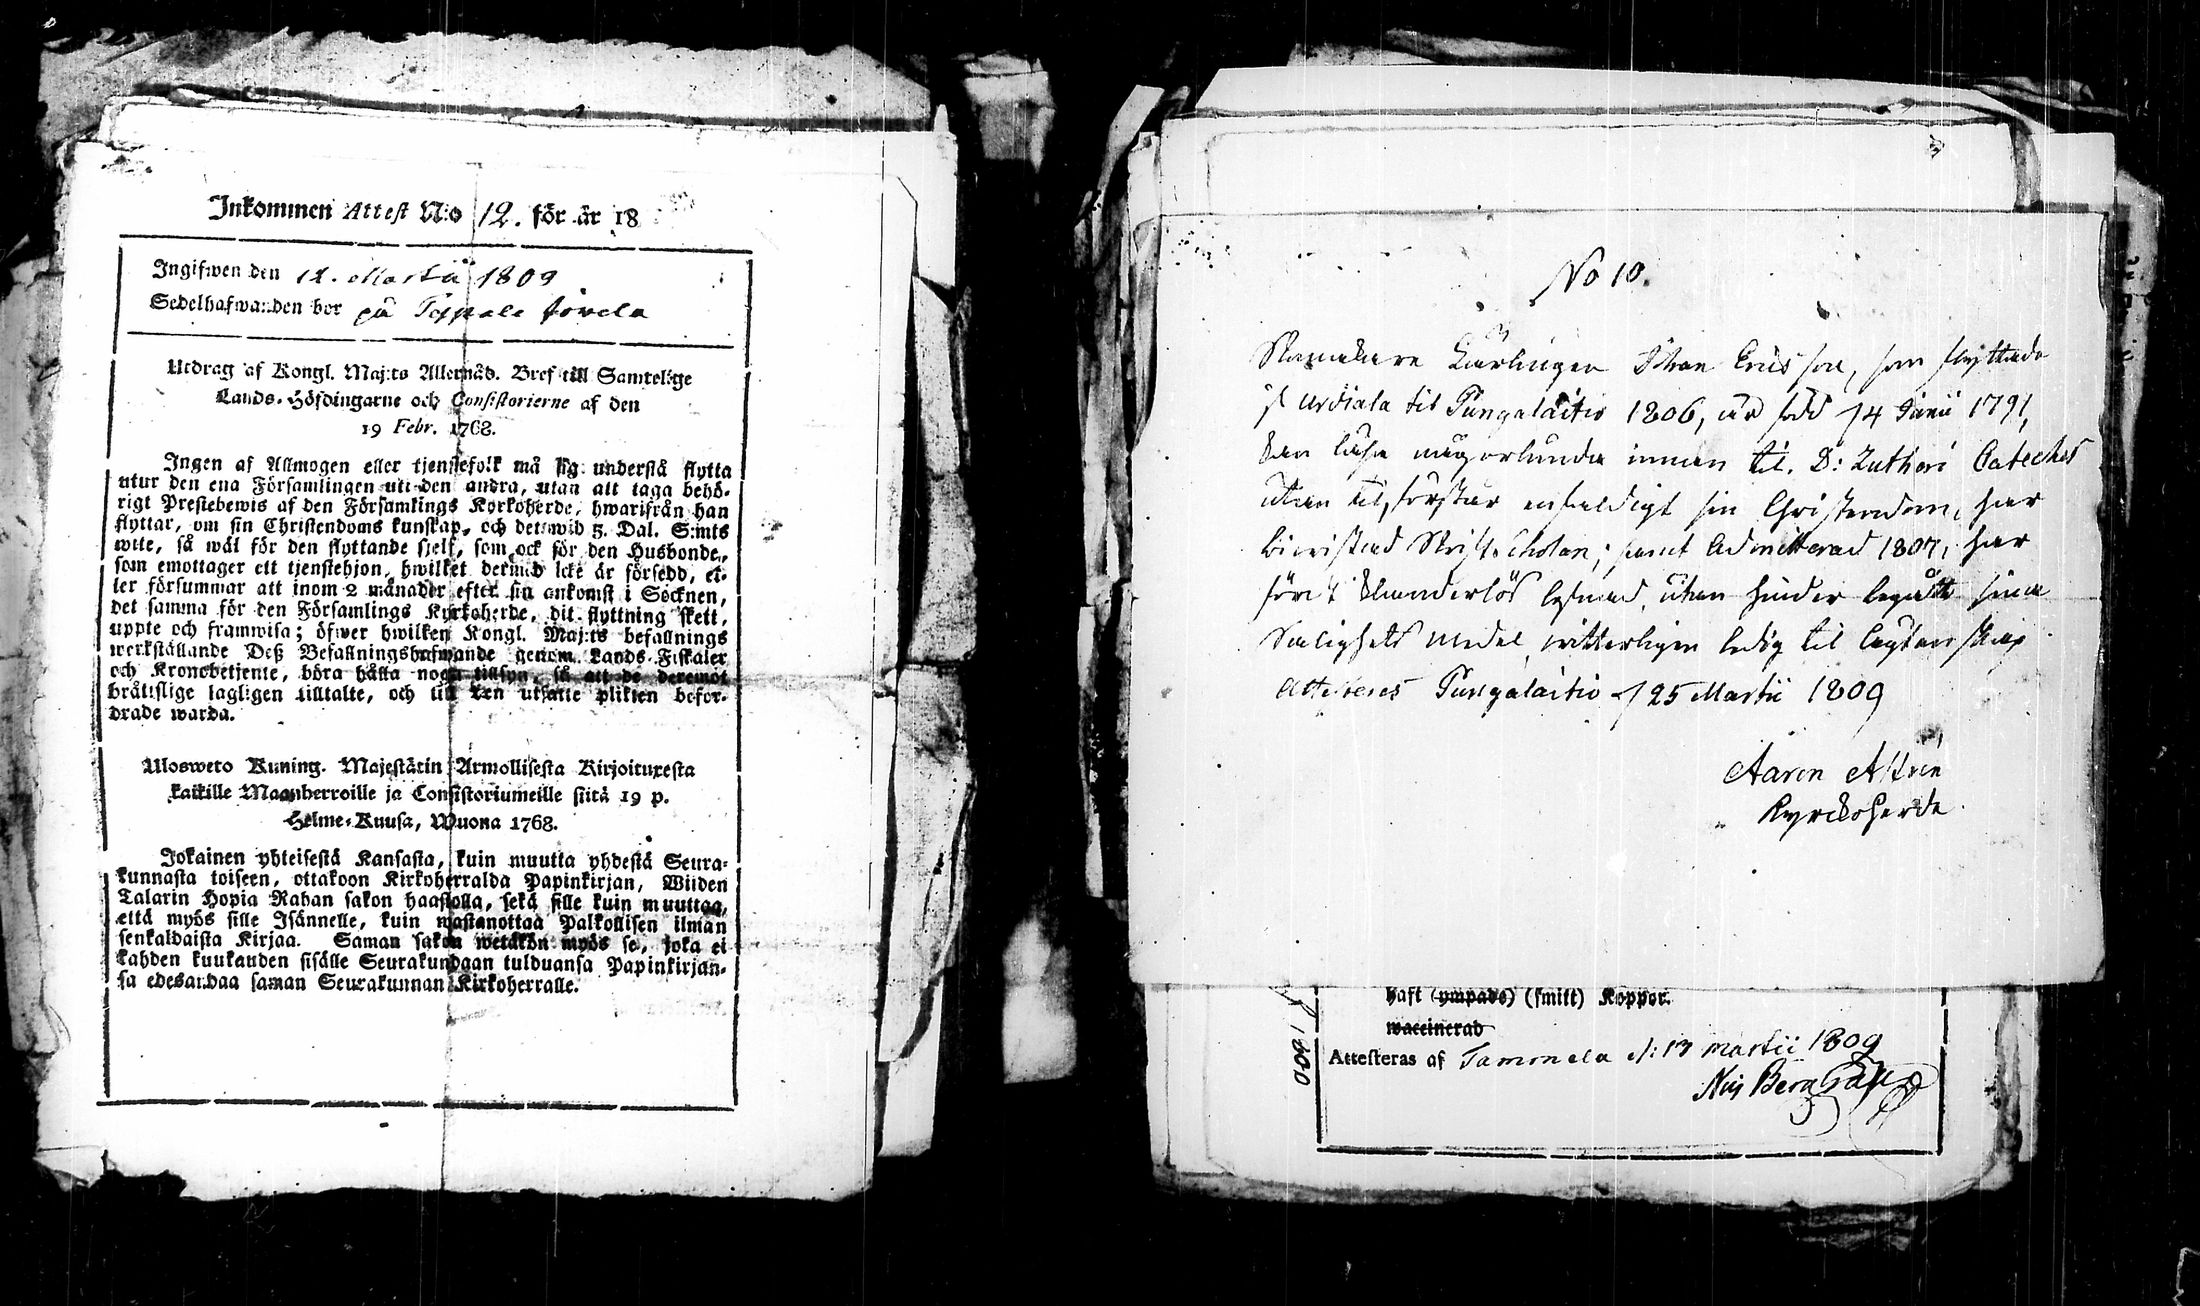 Inkommen Attest N:o 12. för år 18
Ingifwen den 12. Martii 1809
Sedelhafwanden bor på
Utdrag af Kongl. Maj:ts Allernåd. Bref till Samtelige
Lands-Höfdingarne och Consistorierne af den
19 Febr. 1768.
Ingen af Allmogen eller tjenstefolk må sig understå flytta
utur den ena Församlingen uti den andra, utan att taga behö-
rigt Prestebewis af den Församlings Kyrkoherde, hwarifrån han
flyttar, om sin Christendoms kunskap, och det wid 3. Dal. S:mts
wite, så wäl för den flyttande sjelf, som ock för den Husbonde,
som emottager ett tjenstehjon, hwilket dermed icke är försedd, el-
ler försummar att inom 2 månader efter sin ankomst i Socknen,
det samma för den Församlings Kyrkoherde, dit flyttning skett,
uppte och framwisa; öfwer hwilken Kongl. Maj:ts befallnings
werkställande Deß Befallningshafwande genom Lands-Fiskaler
och Kronobetjente, böra hålla noga tillsyn, så att de deremot
brättslige lagligen tilltalte, och till den utsatte plikten befor-
drade warda.
Ulosweto Kuning. Majestätin Armollisesta Kirjoituxesta
kaikille Maanherroille ja Consistoriumeille siitä 19 p.
Helme-Kuusa, Wuona 1768.
Jokainen yhteisestä Kansasta, kuin muutta yhdestä Seura-
kunnasta toiseen, ottakoon Kirkoherralda Papinkirjan, Wiiden
Talarin Hopia Rahan sakon haastolla, sekä sille kuin muuttaa,
että myös sille Isännelle, kuin wastanottaa Palkollisen ilman
senkaldaista Kirjaa. Saman sakon wetäkön myös se, joka ei
kahden kuukauden sisälle Seurakundaan tulduansa Papinkirjan-
sa edesandaa saman Seurakunnan Kirkoherralle.
No 10.
Skomakare Lärlingen Johan Ericsson, som flyttade
fr Urdiala til Pungalaitio 1806, är född d 14 Junii 1791,
kan läsa någorlunda innan til. D: Lutheri Cateches
utan til, förstår enfaldigt sin Christendom, har
bewistad Skrift Scholan, samt Admitterad 1807, har
fört klanderlös lefnad, utan hinder begått sina
Salighets medel, witterligen ledig til Ägtenskap
Attesteres Pungalaitio d 25 Martii 1809
Aaron
Kyrckoherde.
haft (ympade) (smitt) Koppor.
waccinerad
Attesteras af Tammela d: 13 Martii 1809